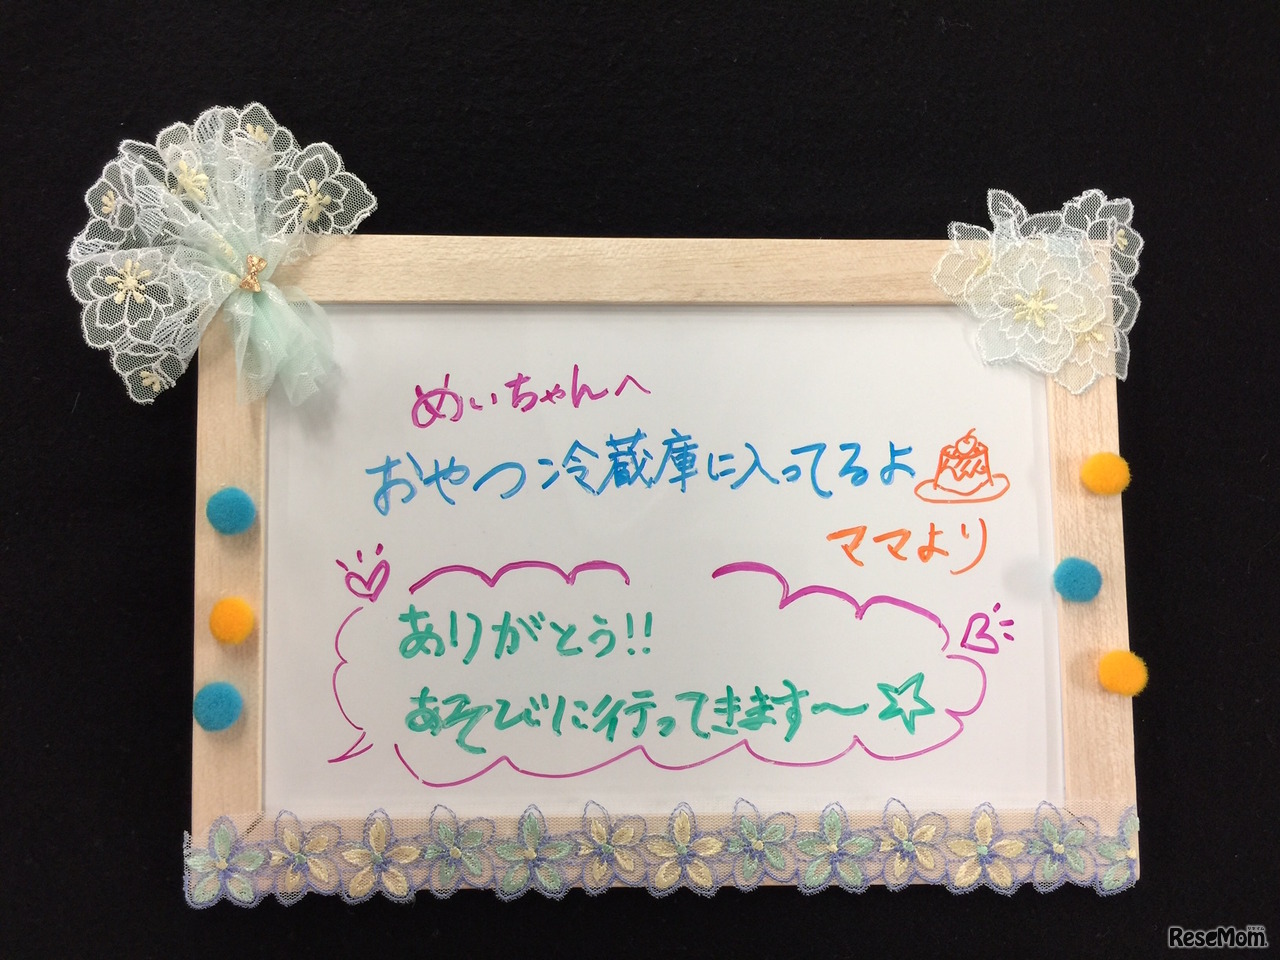 めぃちゃんへ
おやつ冷蔵庫に入ってるよ
ママより
ありがとう!!
あそびに行ってきます〜☆
ReseMom